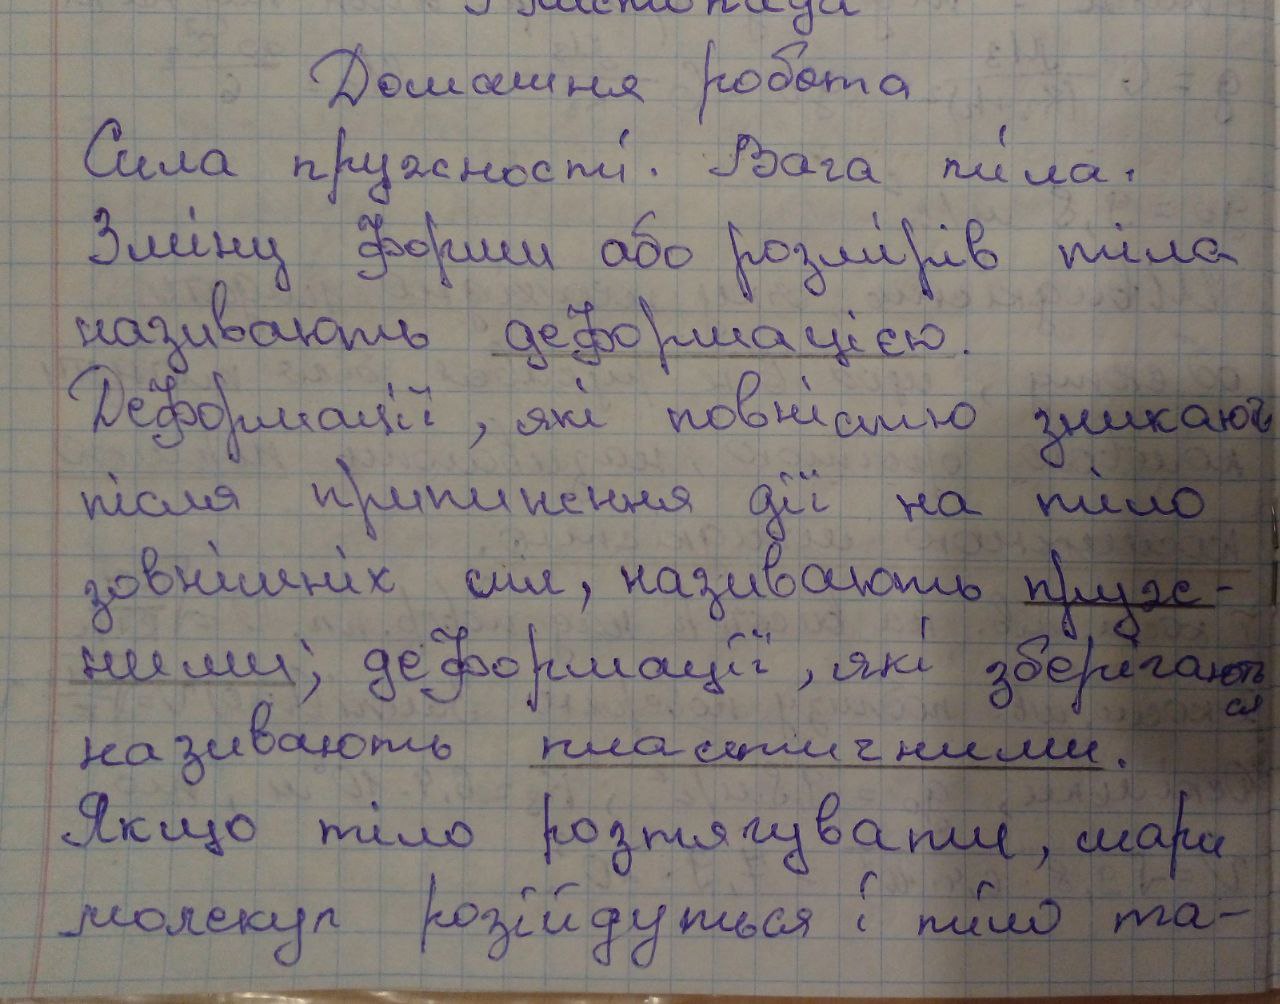 листопада
Домашня робота
Сила пружності. Вага тіла.
Зміну форми або розмірів тіла
називають деформацією.
Деформації, які повністю зникають
після припинення дії на тіло
зовнішніх сил, називають пруж-
ними; деформації, які зберігають
ся
називають пластичними.
Якщо тіло розтягувати, шари
молекул розійдуться і тіло та-